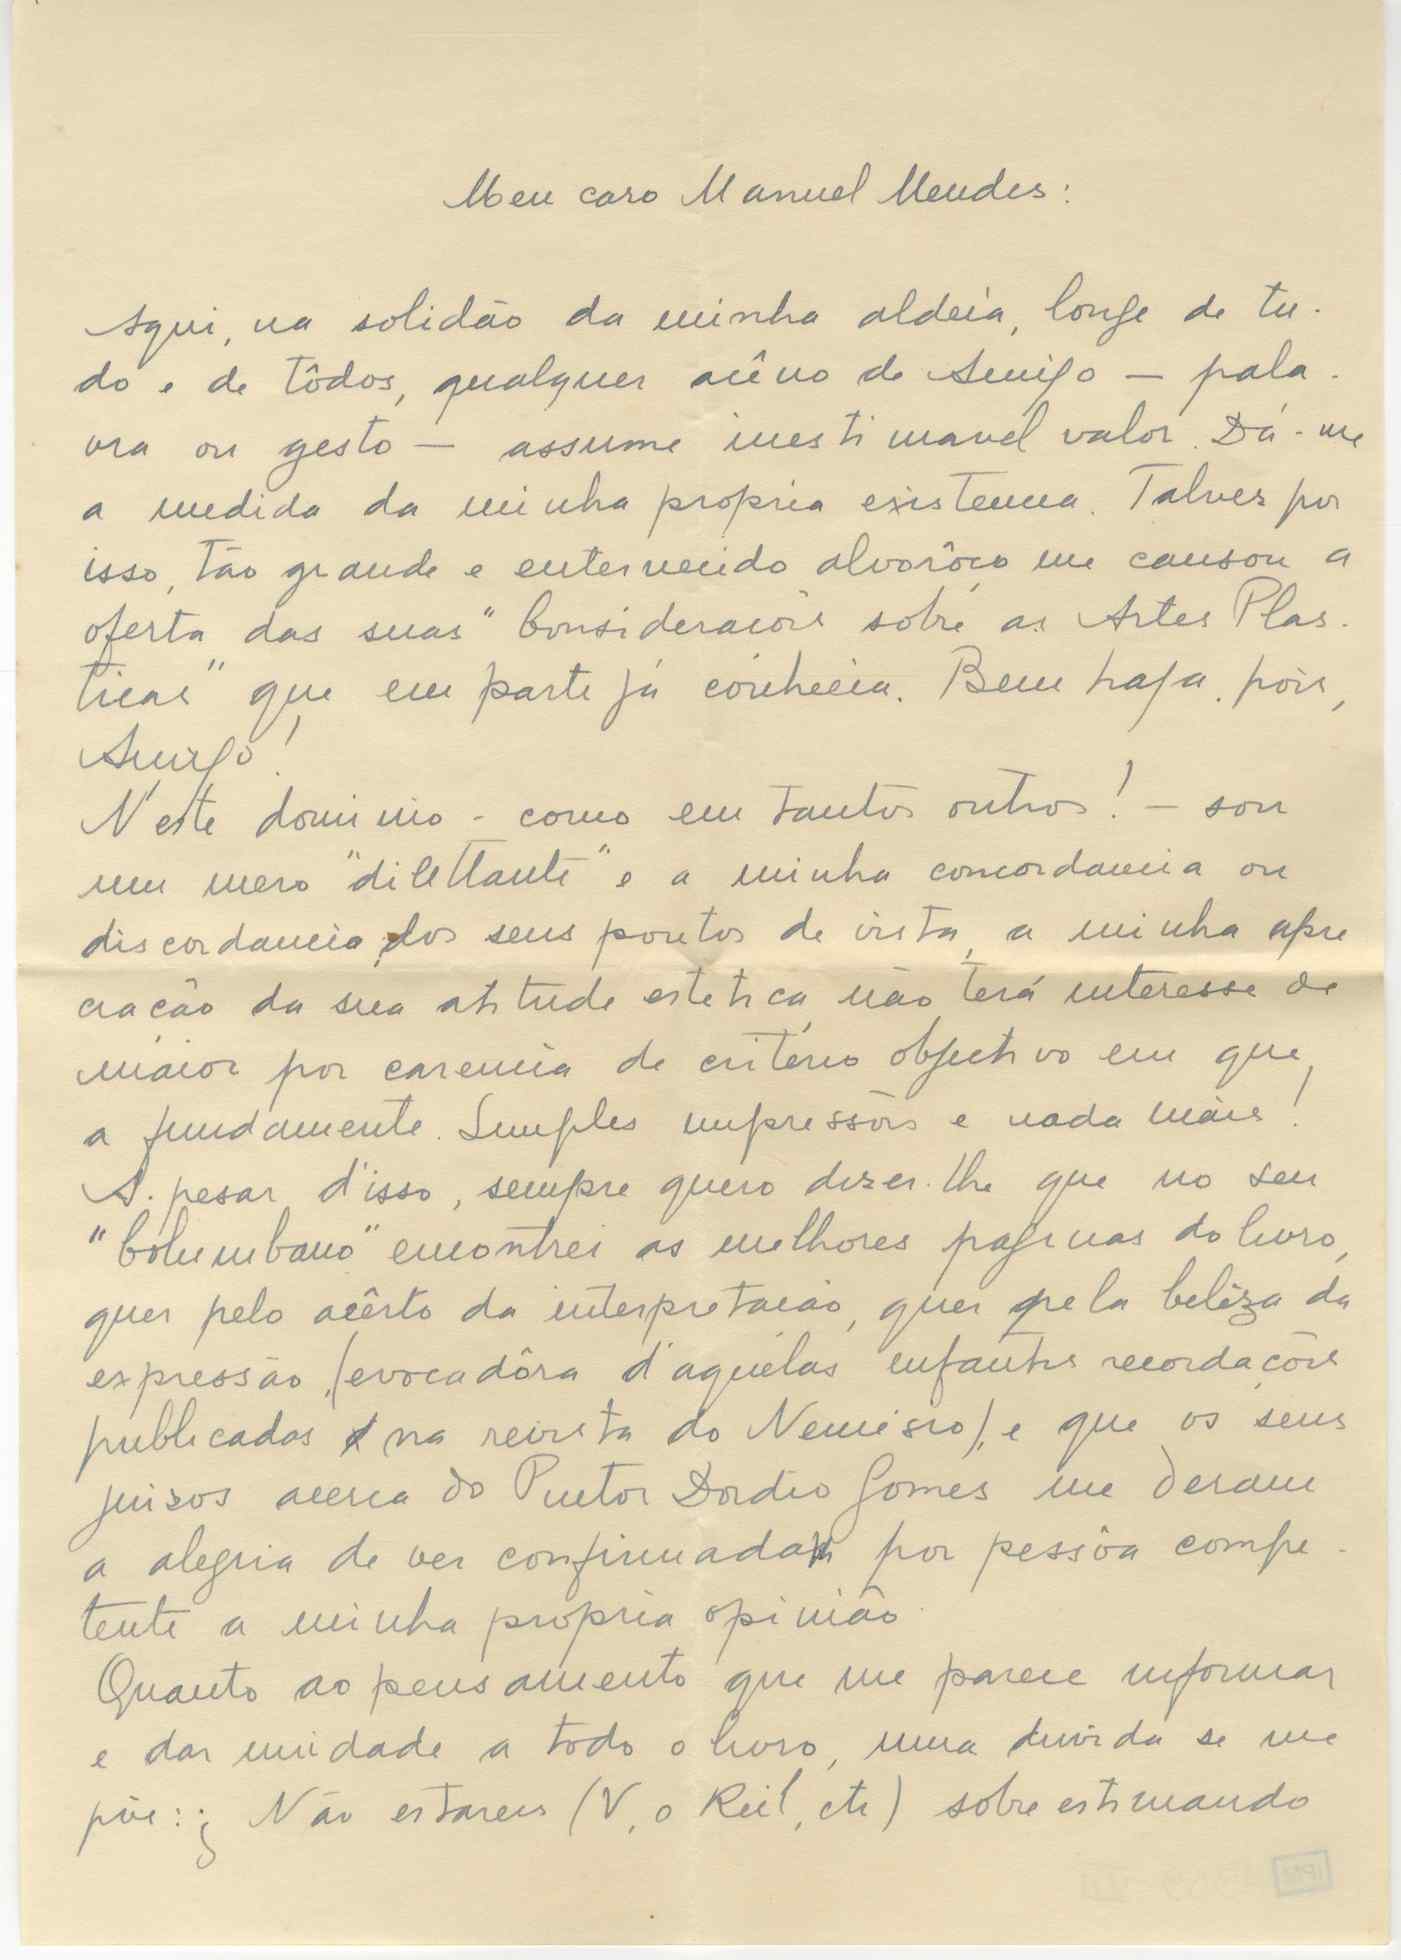 Meu caro Manuel Mendes:
Aqui, na solidão da minha aldeia, longe de tu-
do e de tôdos, qualquer acêno de Amigo — pala-
vra ou gesto — assume inestimavel valor. Dá-me
a medida da minha propria existencia. Talvez por
isso, tão grande e enternecido alvorôço me causou a
oferta das suas "Considerações sobre as Artes Plas-
ticas" que em parte já conhecia. Bem haja, pois,
Amigo!
N'este dominio - como em tantos outros! - sou
um mero "dilettante" e a minha concordancia ou
discordancia dos seus pontos de vista, a minha apre
ciação da sua atitude estetica não terá interesse de
máior por carencia de critério objectivo em que
a fundamente. Simples impressões e nada máis!
A-pesar d'isso, sempre quero dizer-lhe que no seu
"Columbano" encontrei as melhores paginas do livro,
quer pelo acêrto da interpretação, quer pela belêza da
expressão, (evocadôra d'aquelas infantis recordações
publicadas na revista do Nemésio), e que os seus
juizos acerca do Pintor Dordio Gomes me deram
a alegria de ver confirmada por pessôa compe-
tente a minha propria opinião.
Quanto ao pensamento que me parece informar
e dar unidade a todo o livro, uma duvida se me
põe: ¿ Não estareis (V., o Reil, etc) sobreestimando